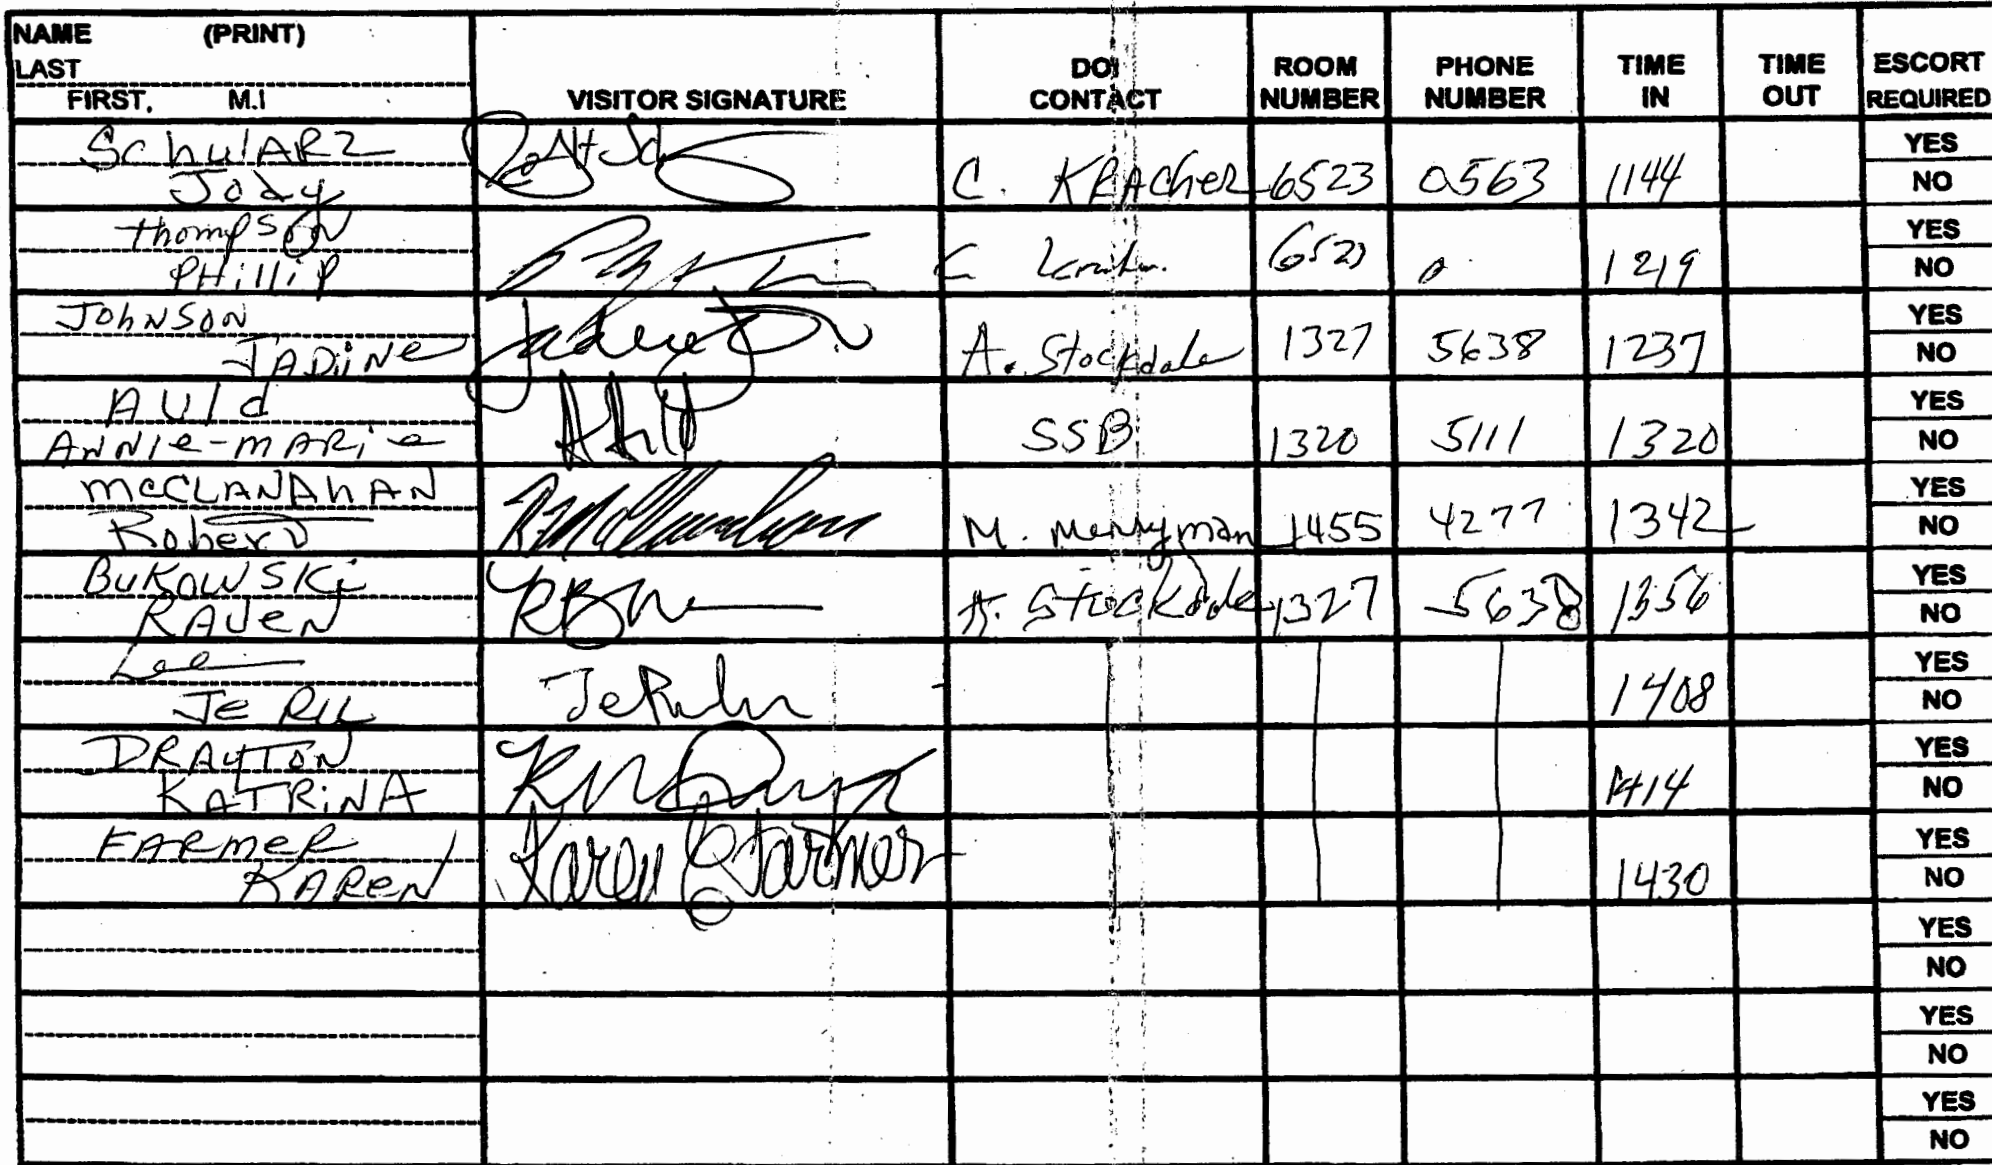 NAME (PRINT)
LAST
FIRST, M.I
VISITOR SIGNATURE
DOI CONTACT
ROOM NUMBER
PHONE NUMBER
TIME IN
TIME OUT
ESCORT REQUIRED
SchwARZ
Jody
C. KRACher 6523 0563 1144
YES
NO
thompson
PHilliP
C 1219
YES
NO
JOhNSON
JADiNe
A. Stockdale 1327 5638 1237
YES
NO
AUld
ANNIe-mARie
SSB 1320 5111 1320
YES
NO
mcCLANAhAN
Robert
M. Merryman 1455 4277 1342
YES
NO
BuKOWSKi
RAVEN
A. Stockdale 1327 5638 1356
YES
NO
Lee
Je Ru
1408
YES
NO
DRAYTON
KATRiNA
1414
YES
NO
FARmeR
KAReN
Karen Farmer
1430
YES
NO
YES
NO
YES
NO
YES
NO